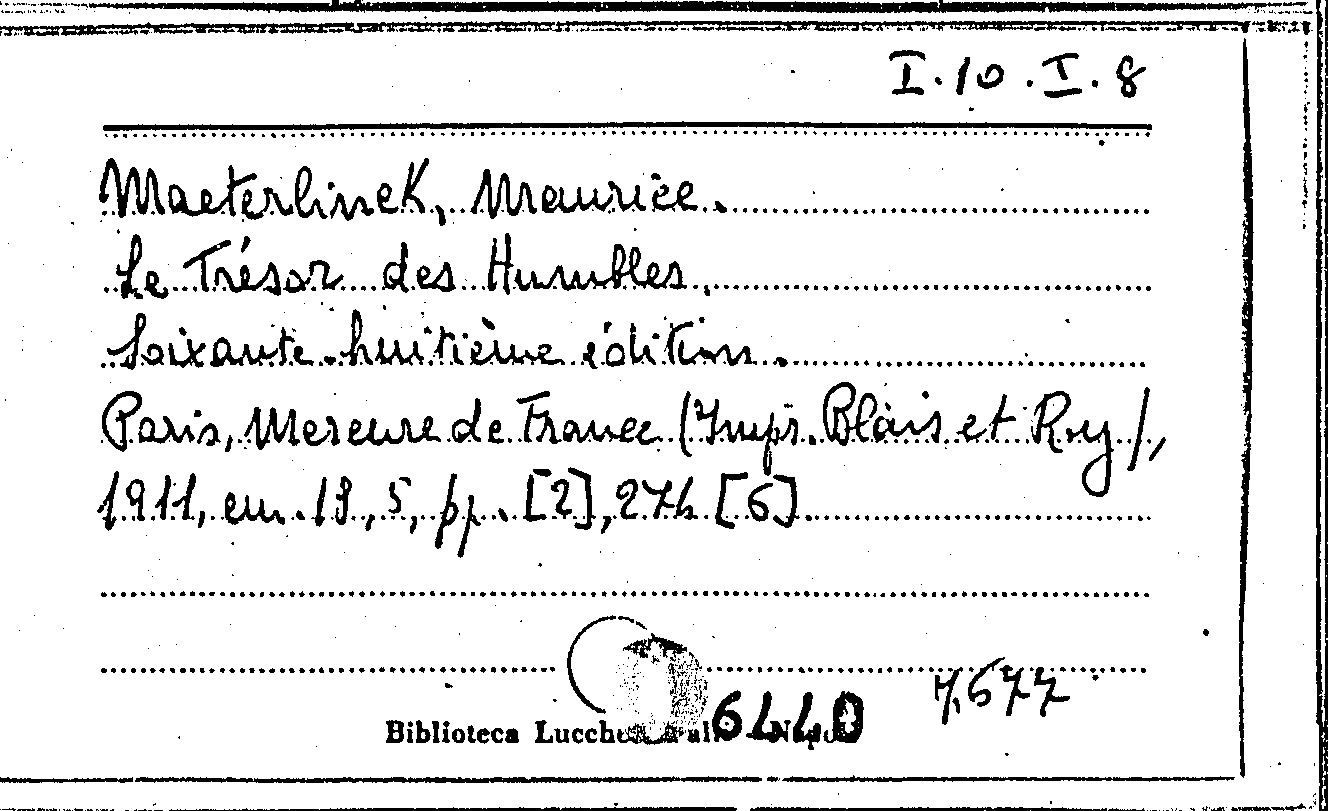 I.10.I.8
Maeterlinck, Maurice.
Le Trésor des Humbles.
Soixante-huitième édition.
Paris, Mercure de France (Impr. Blais et Roy),
1911, cm. 19,5, pp. [2], 274 [6]
7.677
6440
Biblioteca